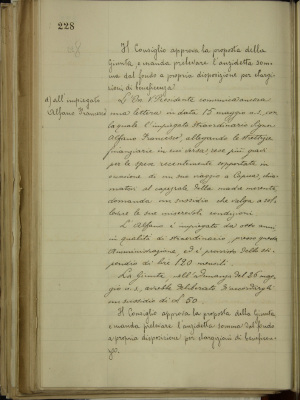 228
Il Consiglio approva la proposta della
Giunta, e manda prelevare l'anzidetta som-
ma dal fondo a propria disposizione per elargi-
zioni di beneficenza.
a) all'impiegato
Alfano Francesco
Il Presidente comunica ancora
una lettera in data 15 maggio u.s. con
la quale l'impiegato straordinario Signor
Alfano Francesco, allegando le strettezze
finanziarie in cui versa, rese più gravi
per le spese recentemente sopportate in
occasione di un suo viaggio a Capua, chia-
matovi al capezzale della madre morente,
domanda un sussidio che valga a sol-
levare le sue miserevoli condizioni.
L'Alfano è impiegato da otto anni
in qualità di straordinario presso questa
Amministrazione ed è provvisto dello sti-
pendio di lire 120 mensili.
La Giunta, nell'adunanza del 26 mag-
gio u.s., avrebbe deliberato di accordargli
un sussidio di L. 50.
Il Consiglio approva la proposta della Giunta,
e manda prelevare l'anzidetta somma dal fondo
a propria disposizione per elargizioni di beneficen-
za.